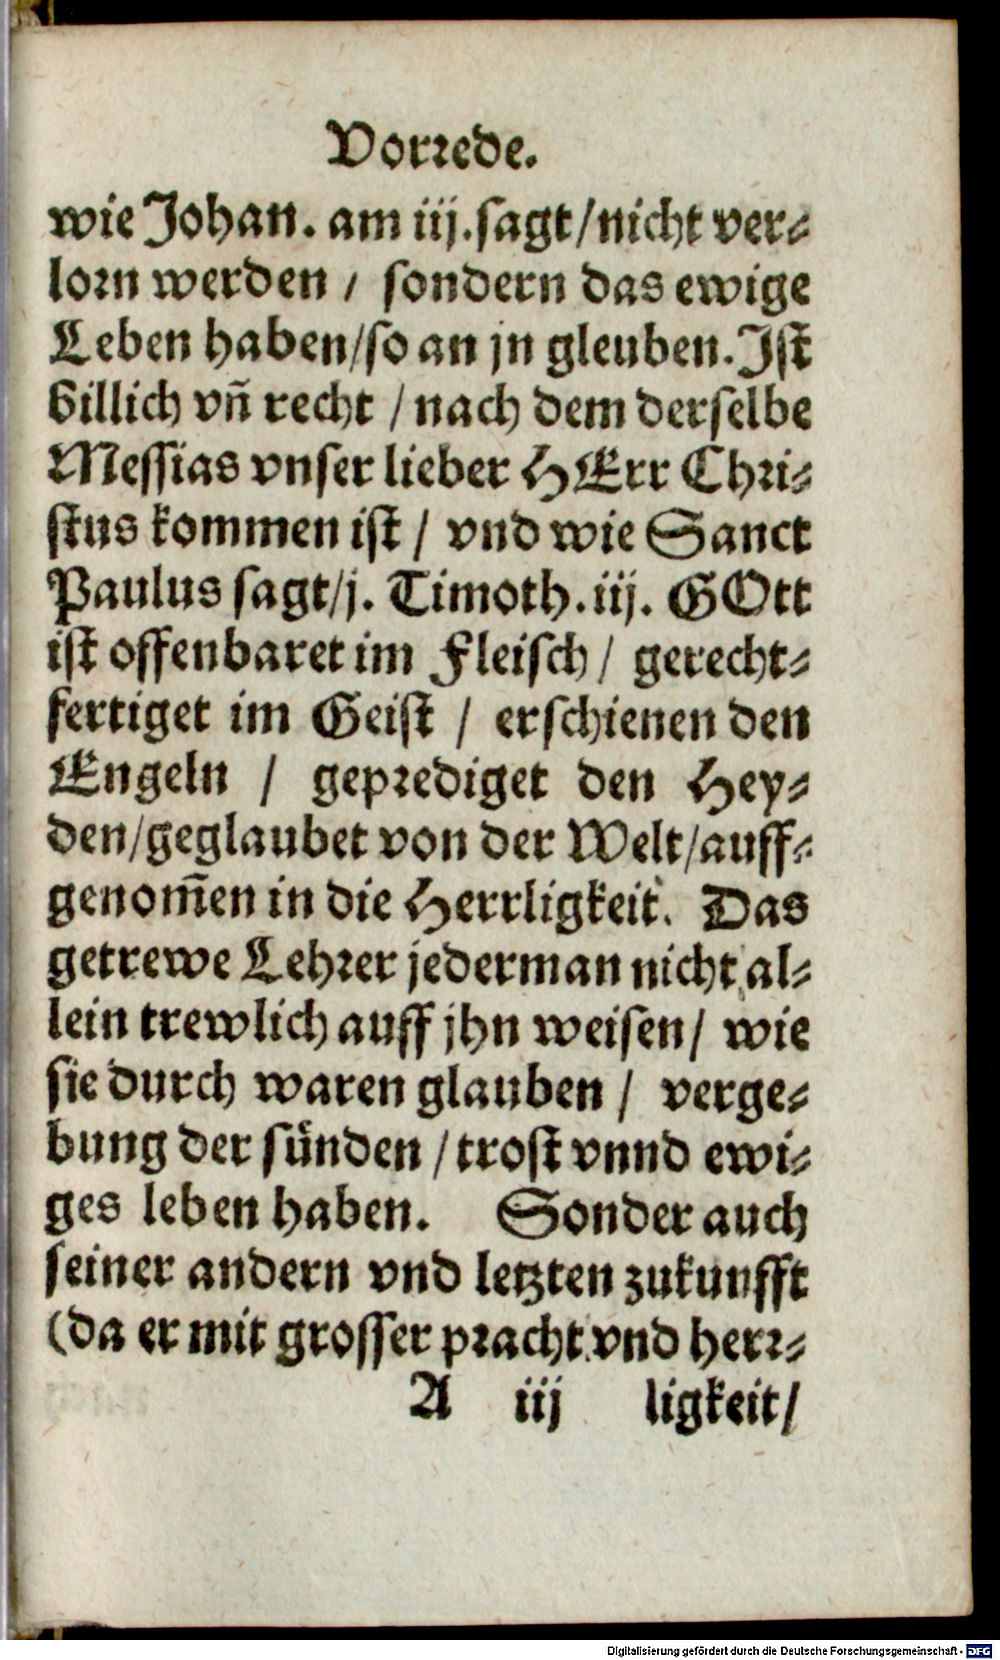 Vorrede.
wie Johan. am iij. sagt/nicht ver⸗
lorn werden / sondern das ewige
Leben haben/so an jn gleuben. Ist
billich vñ recht / nach dem derselbe
Messias vnser lieber HErr Chri⸗
stus kommen ist / vnd wie Sanct
Paulus sagt/j. Timoth. iij. GOtt
ist offenbaret im Fleisch / gerecht⸗
fertiget im Geist / erschienen den
Engeln / geprediget den Hey⸗
den/geglaubet von der Welt/auff⸗
genom̃en in die Herrligkeit. Das
getrewe Lehrer jederman nicht al⸗
lein trewlich auff jhn weisen/ wie
sie durch waren glauben / verge⸗
bung der sünden / trost vnnd ewi⸗
ges leben haben. Sonder auch
seiner andern vnd letzten zukunfft
(da er mit grosser pracht vnd herr⸗
A iij ligkeit/
Digitalisierung gefördert durch die Deutsche Forschungsgemeinschaft - DFG